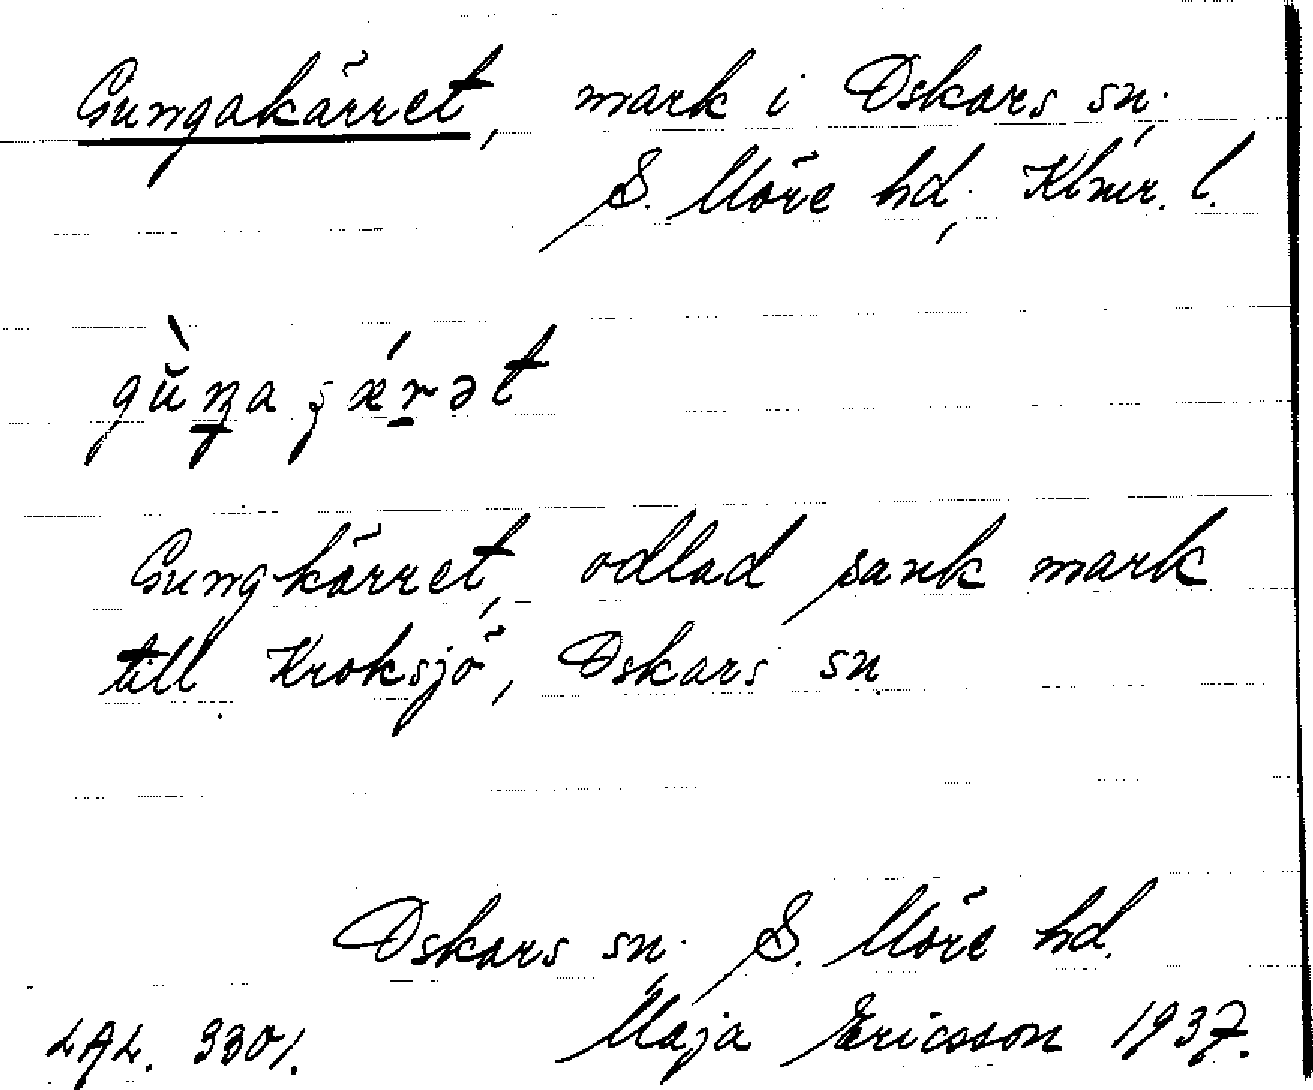 Gungakärret, mark i Oskars sn.,
S. Möre hd., Klmr. l.
gŭ̀ŋa ʂǽrət
Gungkärret, odlad sank mark
till Kroksjö, Oskars sn.
Oskars sn., S. Möre hd.
LAL. 3301. Maja Ericsson 1937.